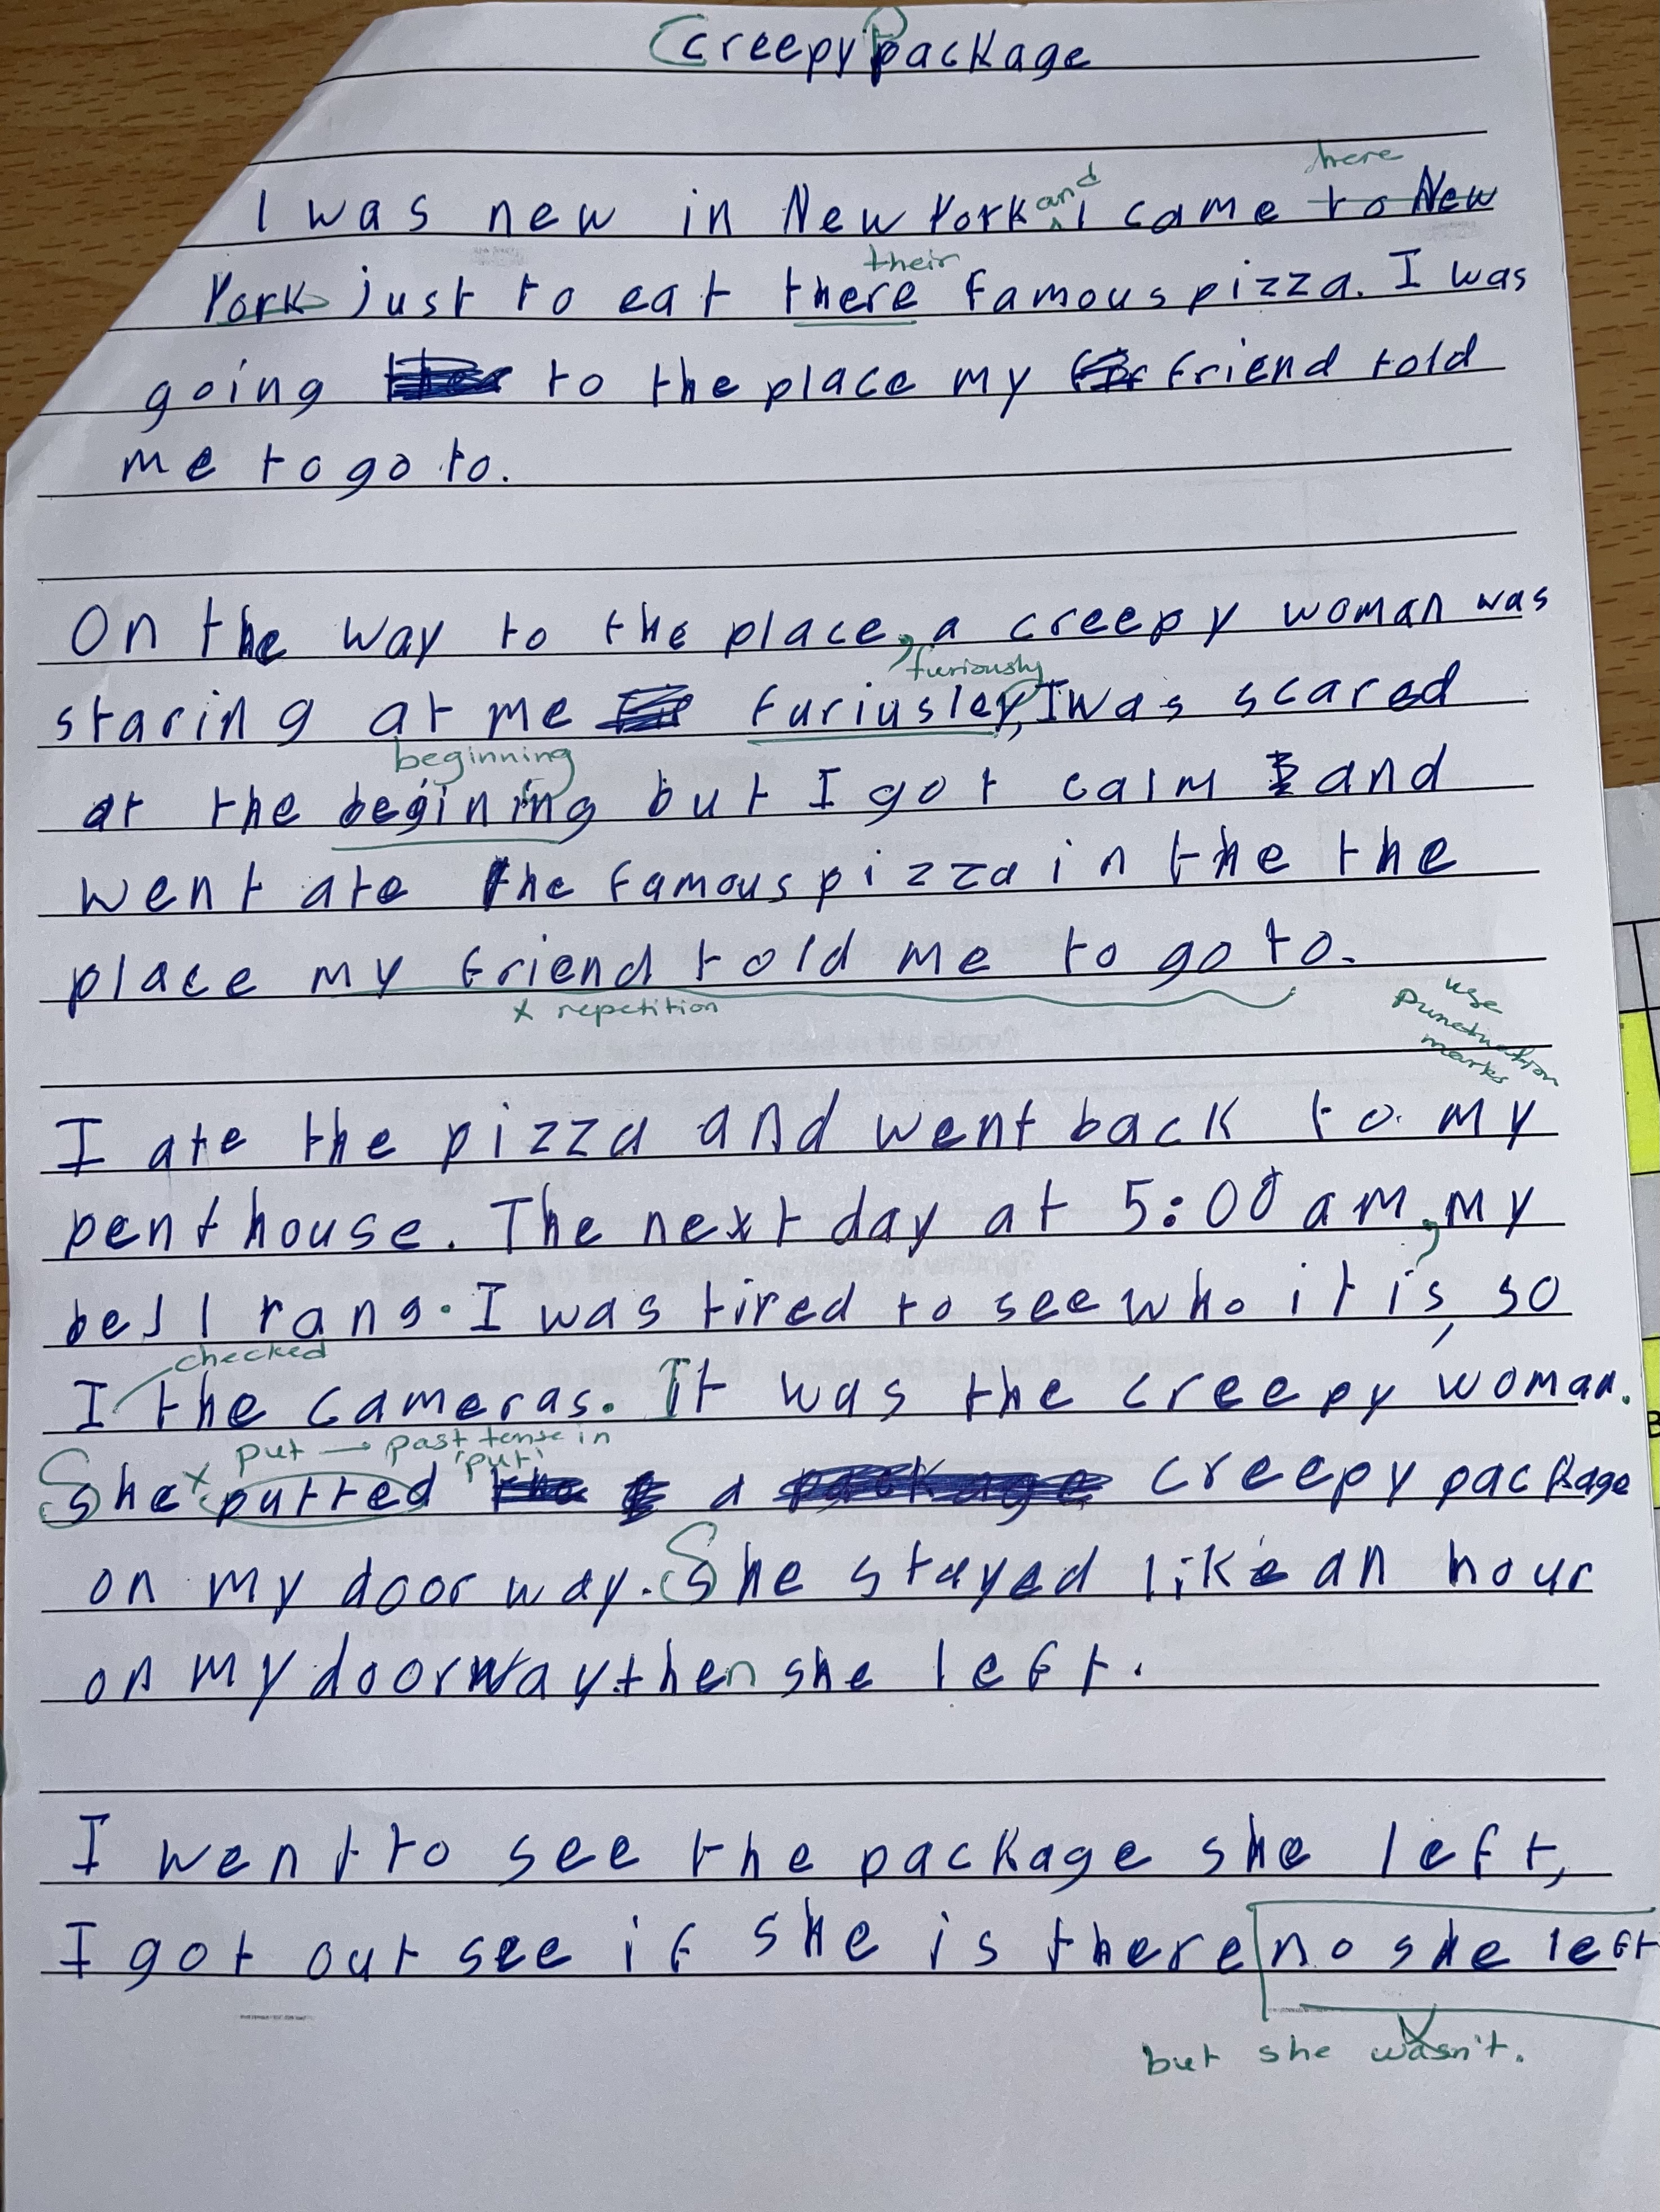 Creepy Package
here
I was new in New York and I came to New
their
York just to eat there famous pizza. I was
going to the place my friend told
me to go to.
On the way to the place, a creepy woman was
furiously
staring at me furiusley, I was scared
beginning
at the begining but I got calm and
went ate the famous pizza in the the
place my friend told me to go to.
x repetition
use
punctuation
marks
I ate the pizza and went back to my
penthouse. The next day at 5:00 am, my
bell rang. I was tired to see who it is, so
checked
I the cameras. It was the creepy woman.
put → past tense in 'put'
She x putted a creepy package
on my door way. She stayed like an hour
on my doorway then she left.
I went to see the package she left,
I got out see if she is there no she left
but she wasn't.